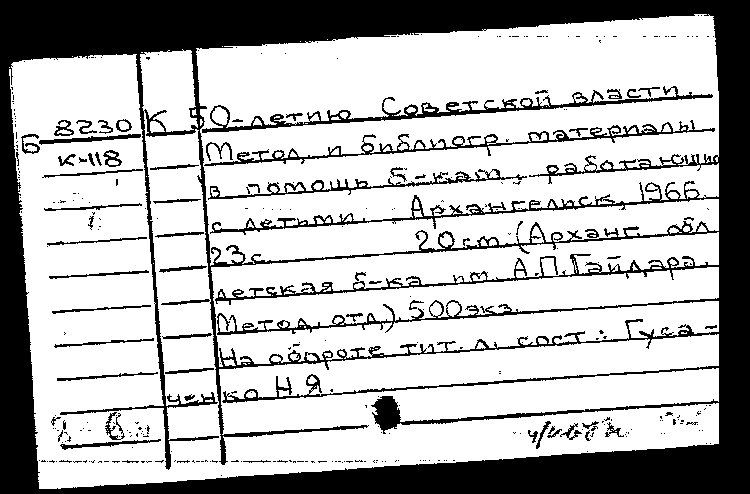 Б 8230 К 50-летию Советской власти.
К-118 Метод. и библиогр. материалы
в помощь б-кам, работающим
с детьми. Архангельск, 1966.
23с. 20см. (Арханг. обл.
детская б-ка им. А.П.Гайдара.
Метод. отд.). 500экз.
На обороте тит. л. сост.: Гуса-
ченко Н.Я.